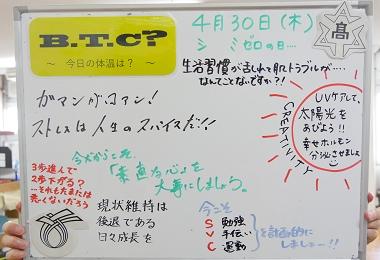 B.T.C?
〜 今日の体温は? 〜
4月30日(木)
シミゼロの日....
高
生活習慣が乱れて肌トラブルが....
なんてことないですか?!
ガマンがコアン!
ストレスは人生のスパイスだ!!
UVケアして、
太陽光を
あびよう!!
幸せホルモン
分泌させましょ
CREATIVITY
今だからこそ
「素直な心」を
大事にしましょう。
3歩進んで
2歩下げる?
...それもたまには
悪くないだろう
現状維持は
後退である
日々成長を
今こそ
S 勉強
V 手伝い
C 運動
を計画的に
しましょー!!